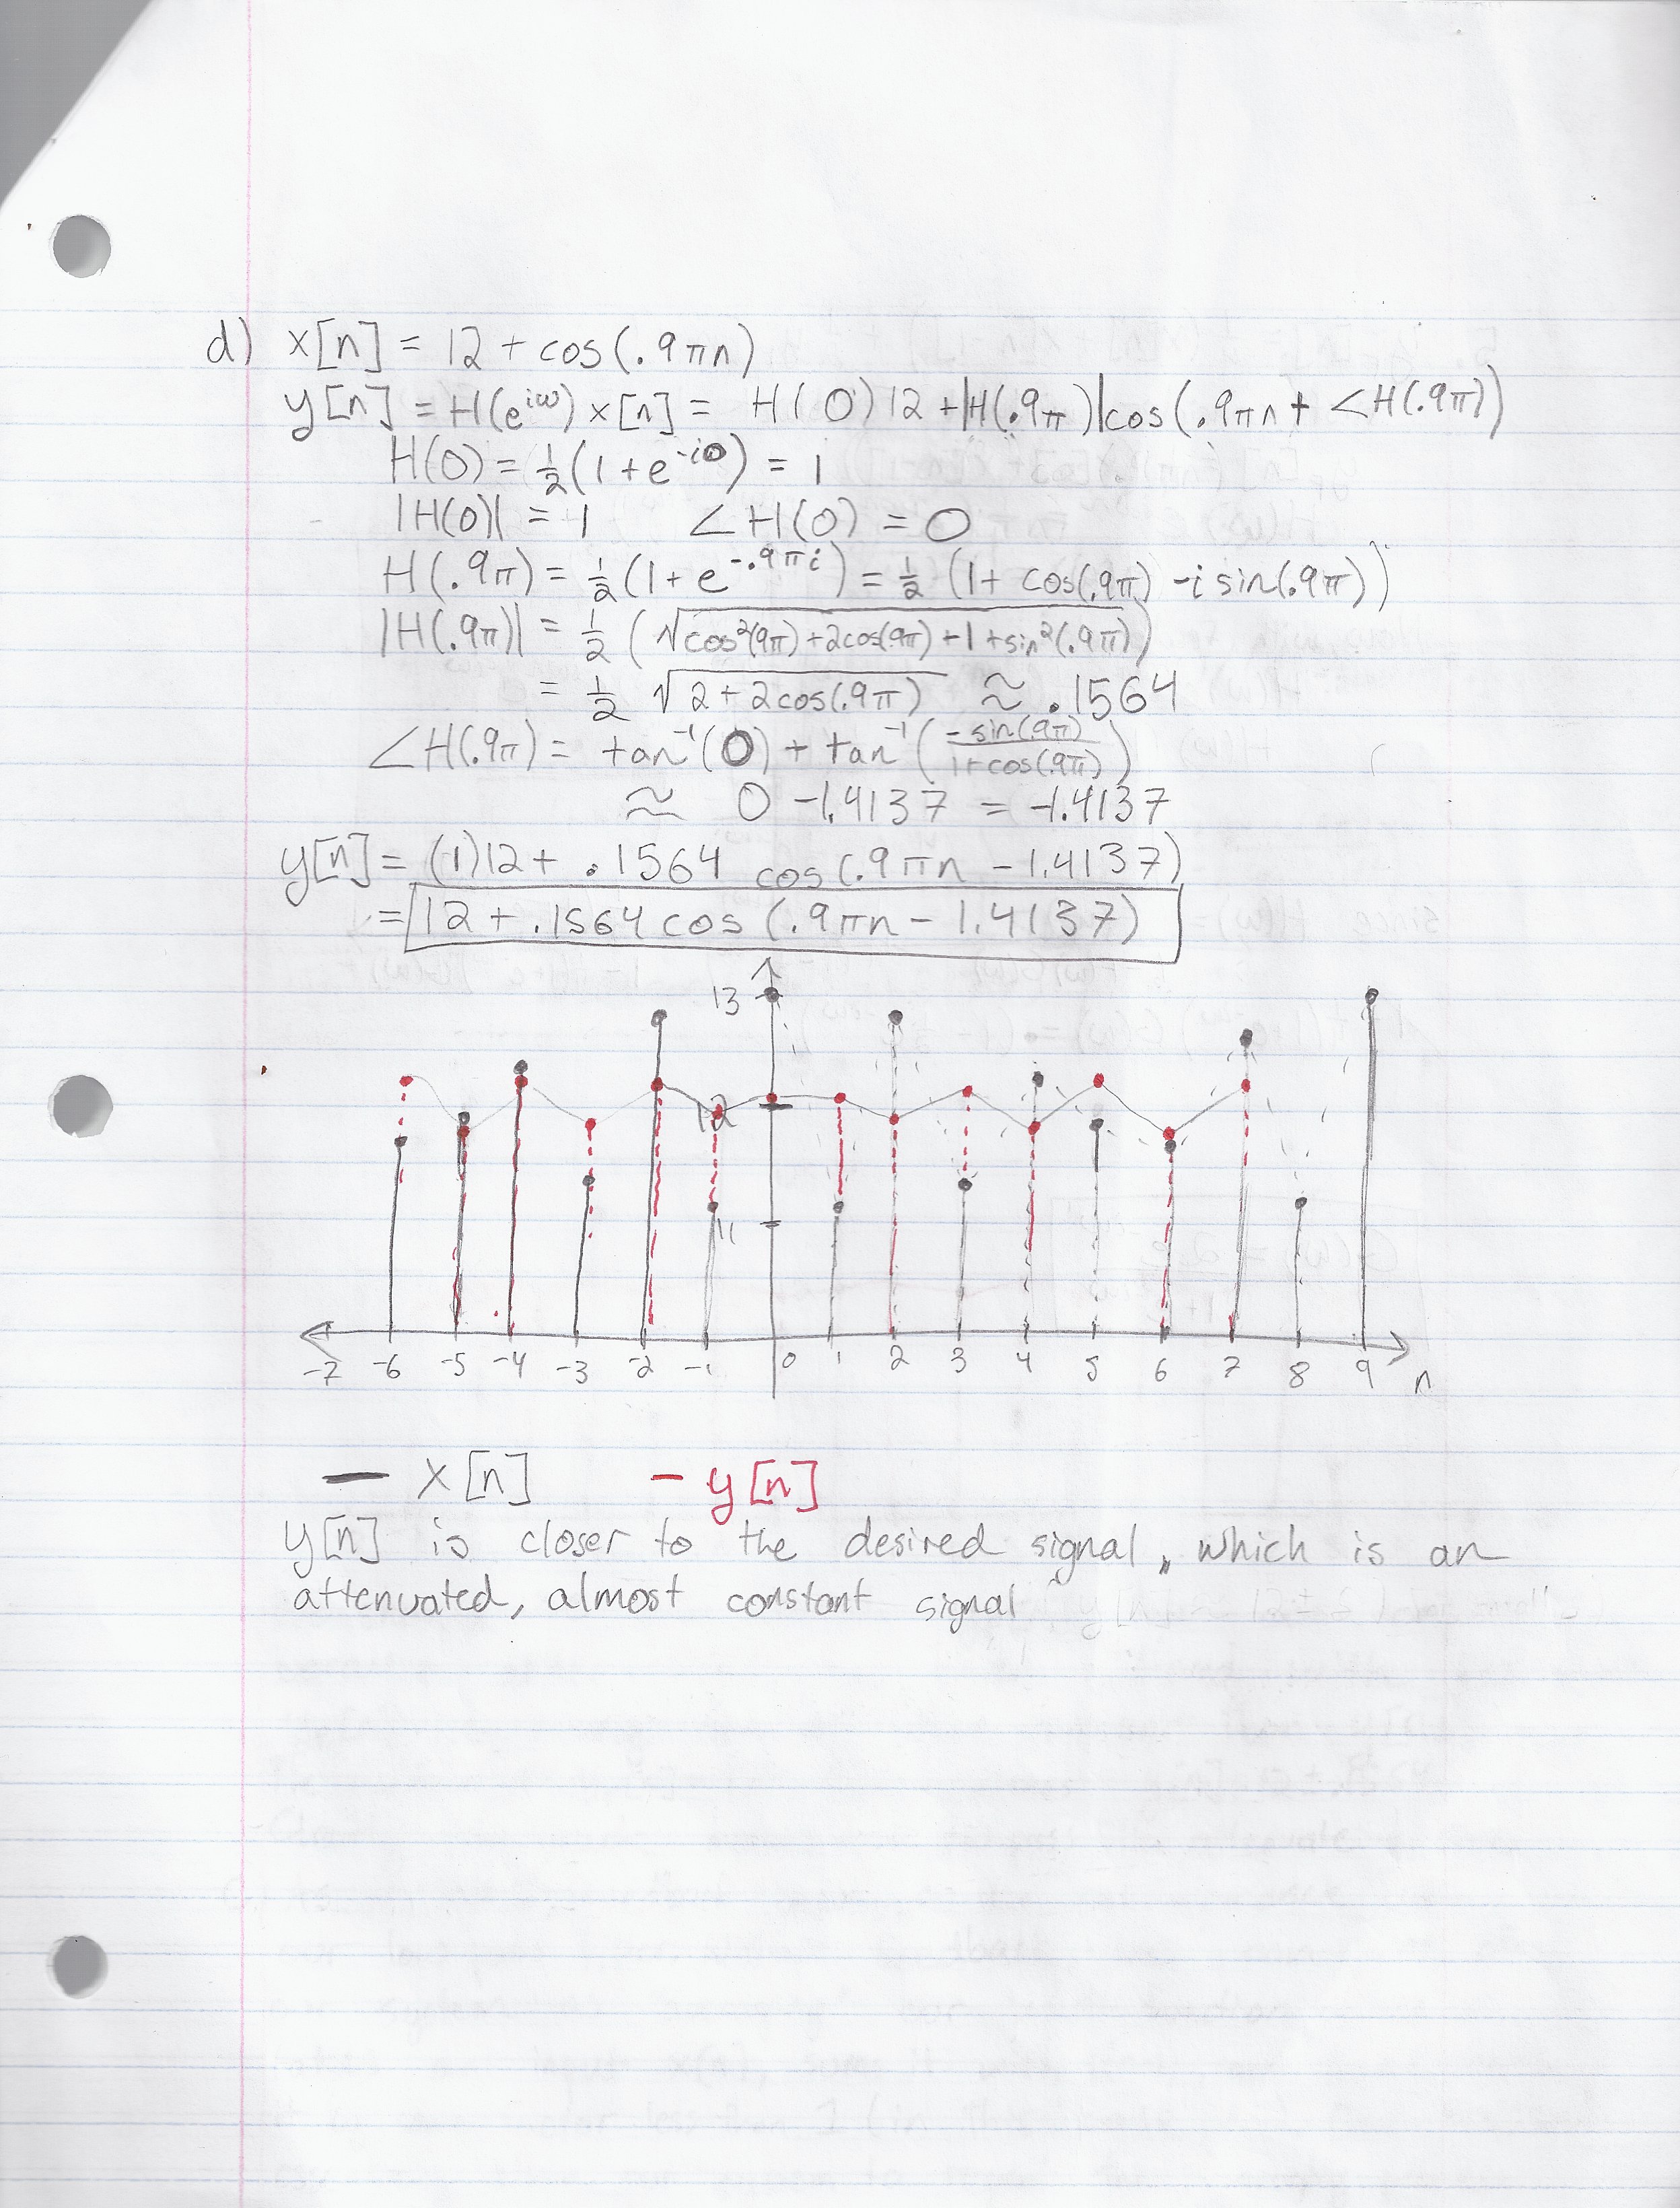 d) x[n] = 12 + cos(.9πn)
y[n] = H(e^{iω}) x[n] = H(0)12 + |H(.9π)|cos(.9πn + ∠H(.9π))
H(0) = 1/2(1 + e^{-i0}) = 1
|H(0)| = 1 ∠H(0) = 0
H(.9π) = 1/2(1 + e^{-.9πi}) = 1/2(1 + cos(.9π) - i sin(.9π))
|H(.9π)| = 1/2(√cos²(.9π) + 2cos(.9π) + 1 + sin²(.9π))
= 1/2 √2 + 2cos(.9π) ≈ .1564
∠H(.9π) = tan⁻¹(0) + tan⁻¹(-sin(.9π)/1+cos(.9π))
≈ 0 - 1.4137 = -1.4137
y[n] = (1)12 + .1564 cos(.9πn - 1.4137)
= 12 + .1564 cos(.9πn - 1.4137)
13
12
11
-7 -6 -5 -4 -3 -2 -1 0 1 2 3 4 5 6 7 8 9 n
— x[n] - y[n]
y[n] is closer to the desired signal, which is an
attenuated, almost constant signal